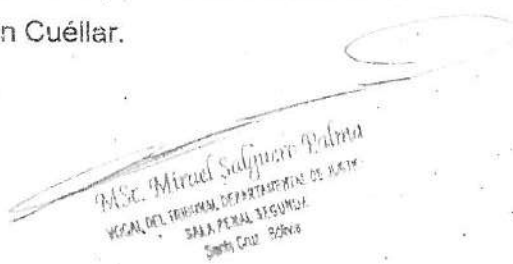 n Cuéllar.
MSc. Miguel Salguero Palma
VOCAL DEL TRIBUNAL DEPARTAMENTAL DE JUSTI
SALA PENAL SEGUNDA
Santa Cruz Bolivia